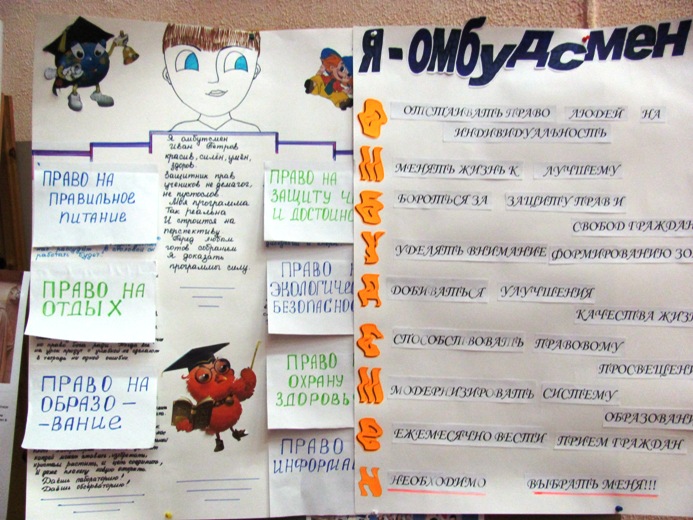 Я омбутсмен
Иван Петров
красив, силён, умён,
здоров.
Защитник прав
учеников не демагог,
не пустослов
Моя программа
Так реальна
И строится на
перспективу
Перед любым
готов собранием
Я доказать
программы силу.
ПРАВО НА
ПРАВИЛЬНОЕ
ПИТАНИЕ
ПРАВО НА
ОТДЫХ
ПРАВО НА
ОБРАЗО-
-ВАНИЕ
Даёшь лабораторию!
Даёшь обсерваторию!
ПРАВО НА
ЗАЩИТУ Ч
И ДОСТОИН
ПРАВО
ЭКОЛОГИЧЕ
БЕЗОПАСНОС
ПРАВО
ОХРАНУ
ЗДОРОВЬ
ПРАВО
ИНФОРМА
Я - ОМБУДСМЕН
О ОТСТАИВАТЬ ПРАВО ЛЮДЕЙ НА
ИНДИВИДУАЛЬНОСТЬ
М МЕНЯТЬ ЖИЗНЬ К ЛУЧШЕМУ
Б БОРОТЬСЯ ЗА ЗАЩИТУ ПРАВ И
СВОБОД ГРАЖДАН
У УДЕЛЯТЬ ВНИМАНИЕ ФОРМИРОВАНИЮ ЗО
Д ДОБИВАТЬСЯ УЛУЧШЕНИЯ
КАЧЕСТВА ЖИЗ
С СПОСОБСТВОВАТЬ ПРАВОВОМУ
ПРОСВЕЩЕНИ
М МОДЕРНИЗИРОВАТЬ СИСТЕМУ
ОБРАЗОВАНИ
Е ЕЖЕМЕСЯЧНО ВЕСТИ ПРИЕМ ГРАЖДАН
Н НЕОБХОДИМО ВЫБРАТЬ МЕНЯ!!!